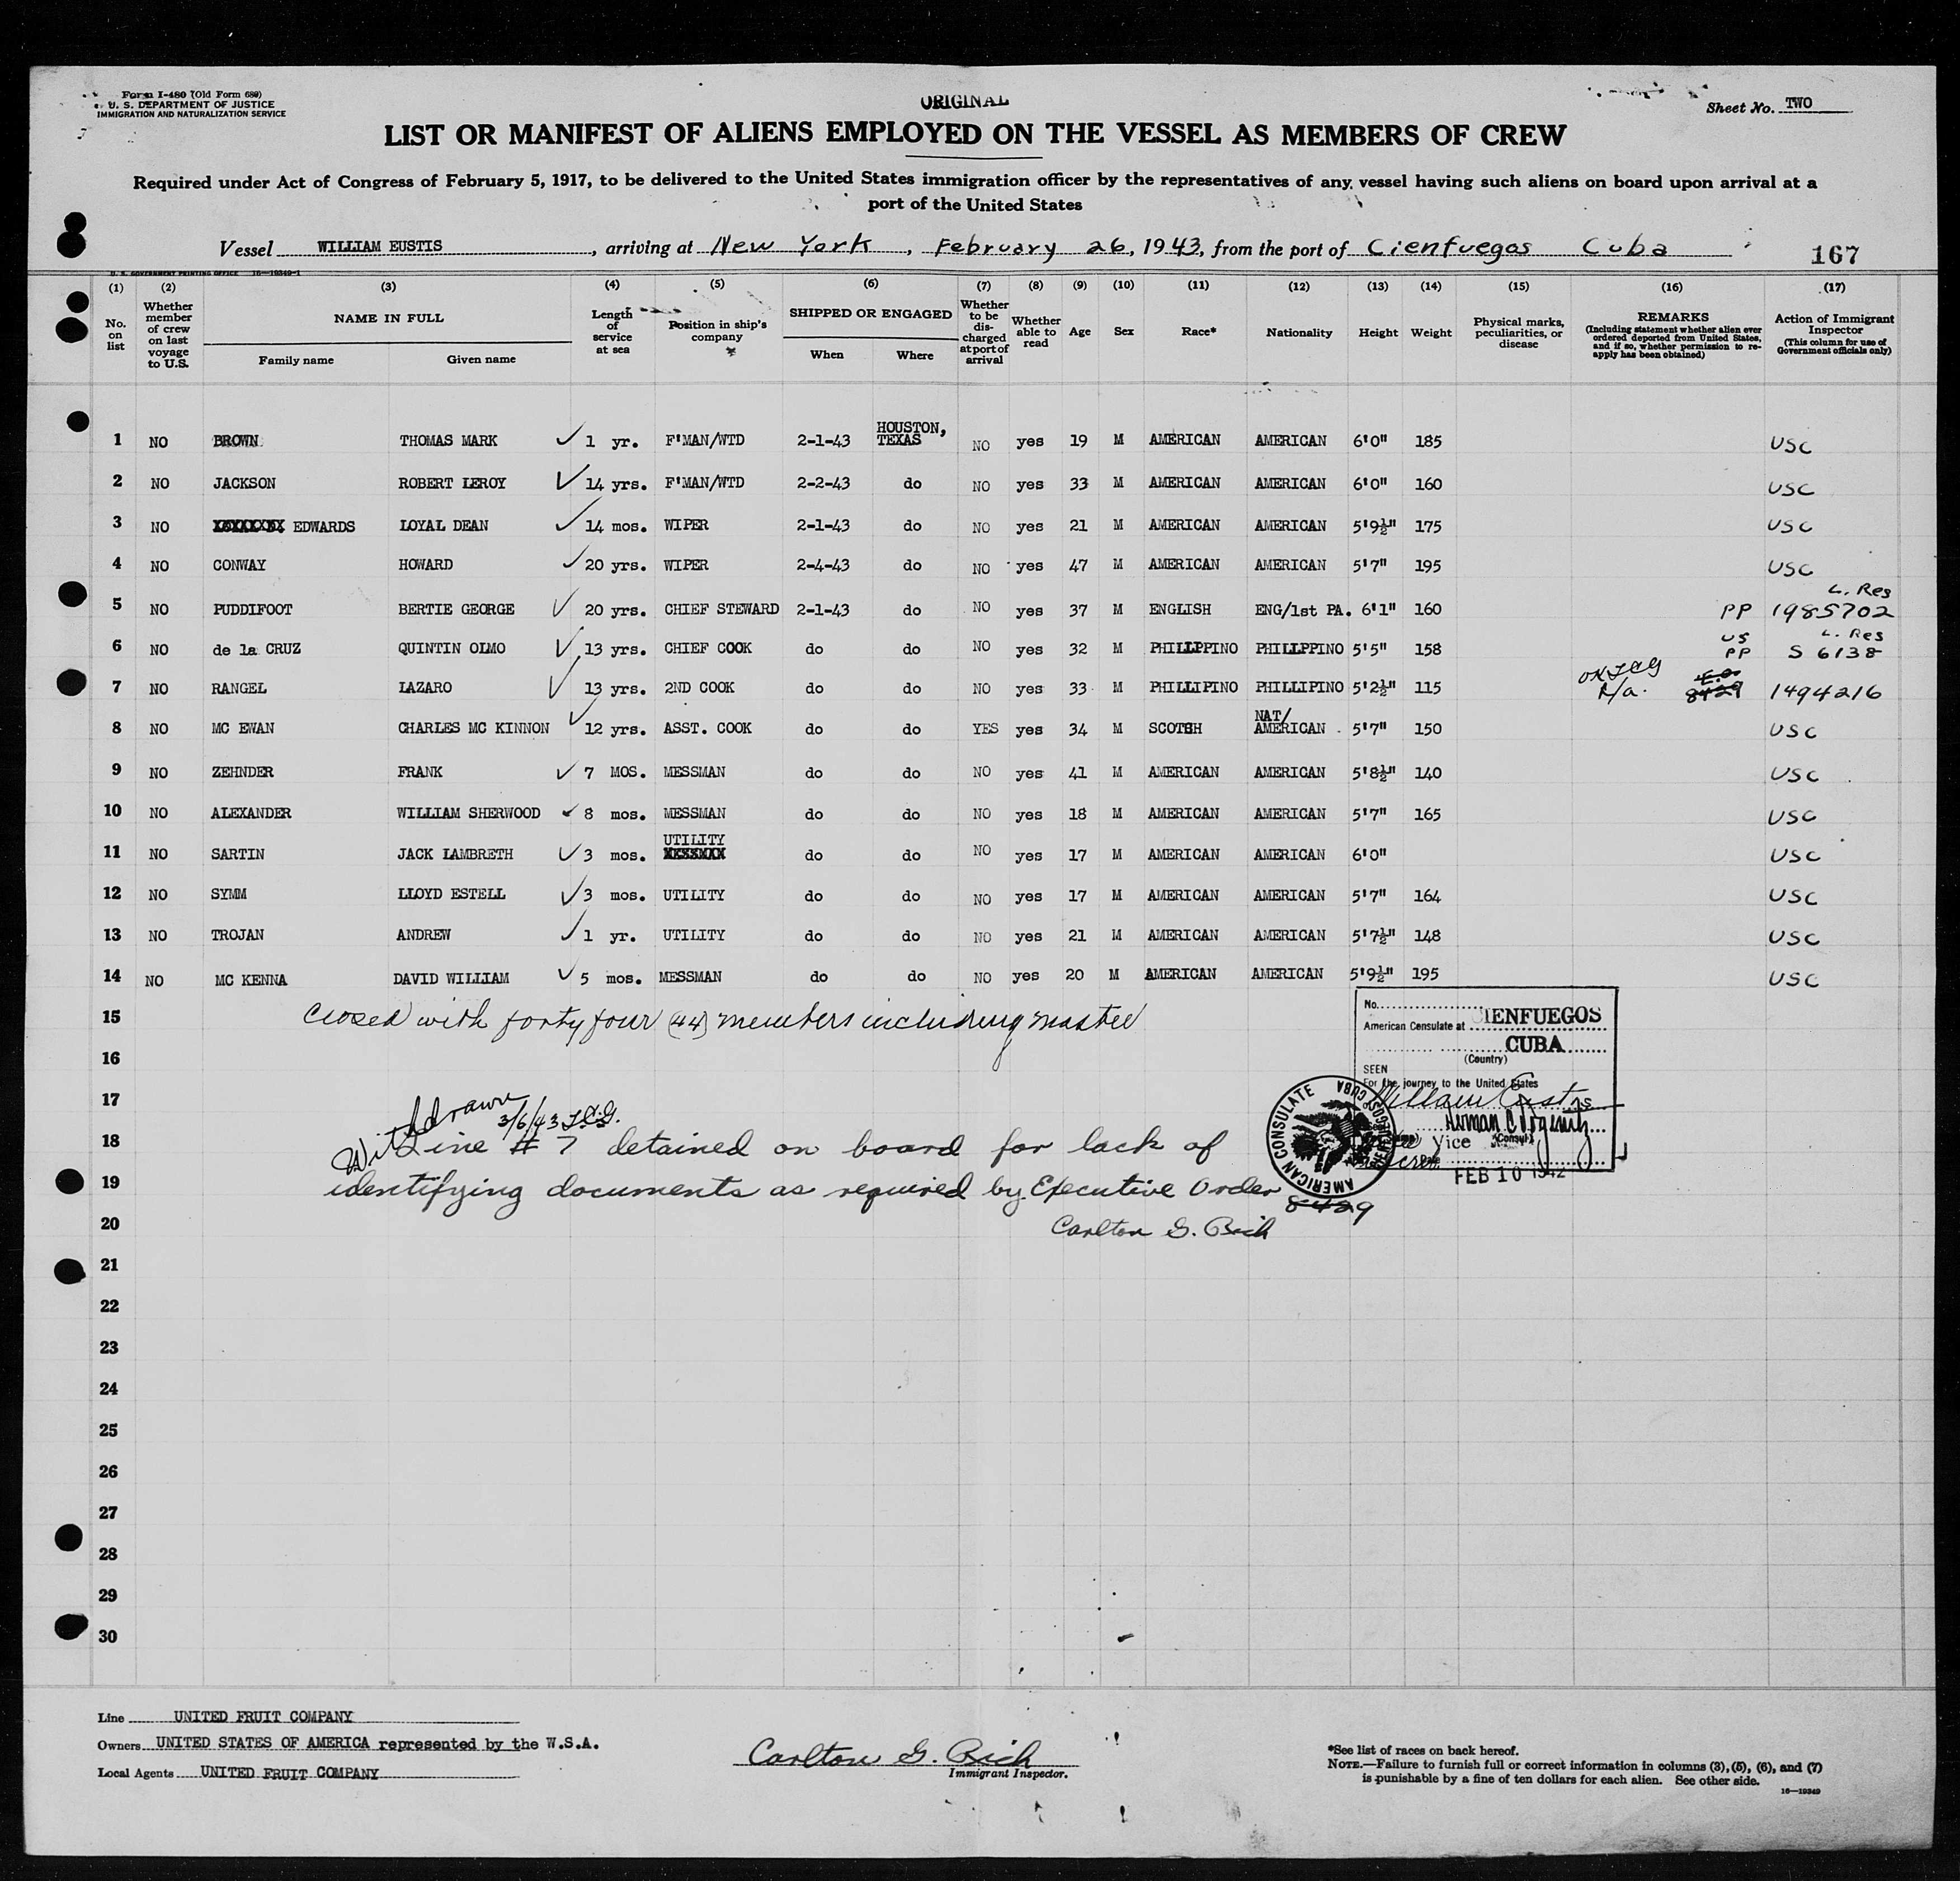 Form I-480 (Old Form 689)
U. S. DEPARTMENT OF JUSTICE
IMMIGRATION AND NATURALIZATION SERVICE
ORIGINAL
Sheet No. TWO
LIST OR MANIFEST OF ALIENS EMPLOYED ON THE VESSEL AS MEMBERS OF CREW
Required under Act of Congress of February 5, 1917, to be delivered to the United States immigration officer by the representatives of any vessel having such aliens on board upon arrival at a
port of the United States
Vessel WILLIAM EUSTIS, arriving at New York, February 26, 1943, from the port of Cienfuegos Cuba
167
U. S. GOVERNMENT PRINTING OFFICE 16—19349-1
(1) (2) (3) (4) (5) (6) (7) (8) (9) (10) (11) (12) (13) (14) (15) (16) (17)
No. on list
Whether member of crew on last voyage to U.S.
NAME IN FULL
Family name Given name
Length of service at sea
Position in ship's company
SHIPPED OR ENGAGED
When Where
Whether to be discharged at port of arrival
Whether able to read
Age Sex Race* Nationality Height Weight
Physical marks, peculiarities, or disease
REMARKS
(Including statement whether alien ever ordered deported from United States, and if so, whether permission to re-apply has been obtained)
Action of Immigrant Inspector
(This column for use of Government officials only)
1 NO BROWN THOMAS MARK ✓ 1 yr. F'MAN/WTD 2-1-43 HOUSTON, TEXAS NO yes 19 M AMERICAN AMERICAN 6'0" 185 USC
2 NO JACKSON ROBERT LEROY ✓ 14 yrs. F'MAN/WTD 2-2-43 do NO yes 33 M AMERICAN AMERICAN 6'0" 160 USC
3 NO EDWARDS LOYAL DEAN ✓ 14 mos. WIPER 2-1-43 do NO yes 21 M AMERICAN AMERICAN 5'9½" 175 USC
4 NO CONWAY HOWARD ✓ 20 yrs. WIPER 2-4-43 do NO yes 47 M AMERICAN AMERICAN 5'7" 195 USC
5 NO PUDDIFOOT BERTIE GEORGE ✓ 20 yrs. CHIEF STEWARD 2-1-43 do NO yes 37 M ENGLISH ENG/1st PA. 6'1" 160 PP L. Res 1985702
6 NO de la CRUZ QUINTIN OLMO ✓ 13 yrs. CHIEF COOK do do NO yes 32 M PHILLPPINO PHILLPPINO 5'5" 158 US PP L. Res S 6138
7 NO RANGEL LAZARO ✓ 13 yrs. 2ND COOK do do NO yes 33 M PHILLIPINO PHILLIPINO 5'2½" 115 E.O. 8429 1494216
8 NO MC EWAN CHARLES MC KINNON ✓ 12 yrs. ASST. COOK do do YES yes 34 M SCOTSH NAT/ AMERICAN 5'7" 150 USC
9 NO ZEHNDER FRANK ✓ 7 MOS. MESSMAN do do NO yes 41 M AMERICAN AMERICAN 5'8½" 140 USC
10 NO ALEXANDER WILLIAM SHERWOOD ✓ 8 mos. MESSMAN do do NO yes 18 M AMERICAN AMERICAN 5'7" 165 USC
11 NO SARTIN JACK LAMBRETH ✓ 3 mos. UTILITY do do NO yes 17 M AMERICAN AMERICAN 6'0" USC
12 NO SYMM LLOYD ESTELL ✓ 3 mos. UTILITY do do NO yes 17 M AMERICAN AMERICAN 5'7" 164 USC
13 NO TROJAN ANDREW ✓ 1 yr. UTILITY do do NO yes 21 M AMERICAN AMERICAN 5'7½" 148 USC
14 NO MC KENNA DAVID WILLIAM ✓ 5 mos. MESSMAN do do NO yes 20 M AMERICAN AMERICAN 5'9½" 195 USC
15 Closed with forty four (44) members including master
16
17
Witdrawn 3/6/43
18 Line # 7 detained on board for lack of
19 identifying documents as required by Executive Order 8429
20 Carlton G. Rich
No.
American Consulate at CIENFUEGOS
CUBA
(Country)
SEEN
For the journey to the United States
William Eustis
Vice Consul
FEB 10
AMERICAN CONSULATE CIENFUEGOS, CUBA
21
22
23
24
25
26
27
28
29
30
Line UNITED FRUIT COMPANY
Owners UNITED STATES OF AMERICA represented by the W.S.A.
Local Agents UNITED FRUIT COMPANY
Carlton G. Rich
Immigrant Inspector.
*See list of races on back hereof.
NOTE.—Failure to furnish full or correct information in columns (3), (5), (6), and (7)
is punishable by a fine of ten dollars for each alien. See other side.
16—19349